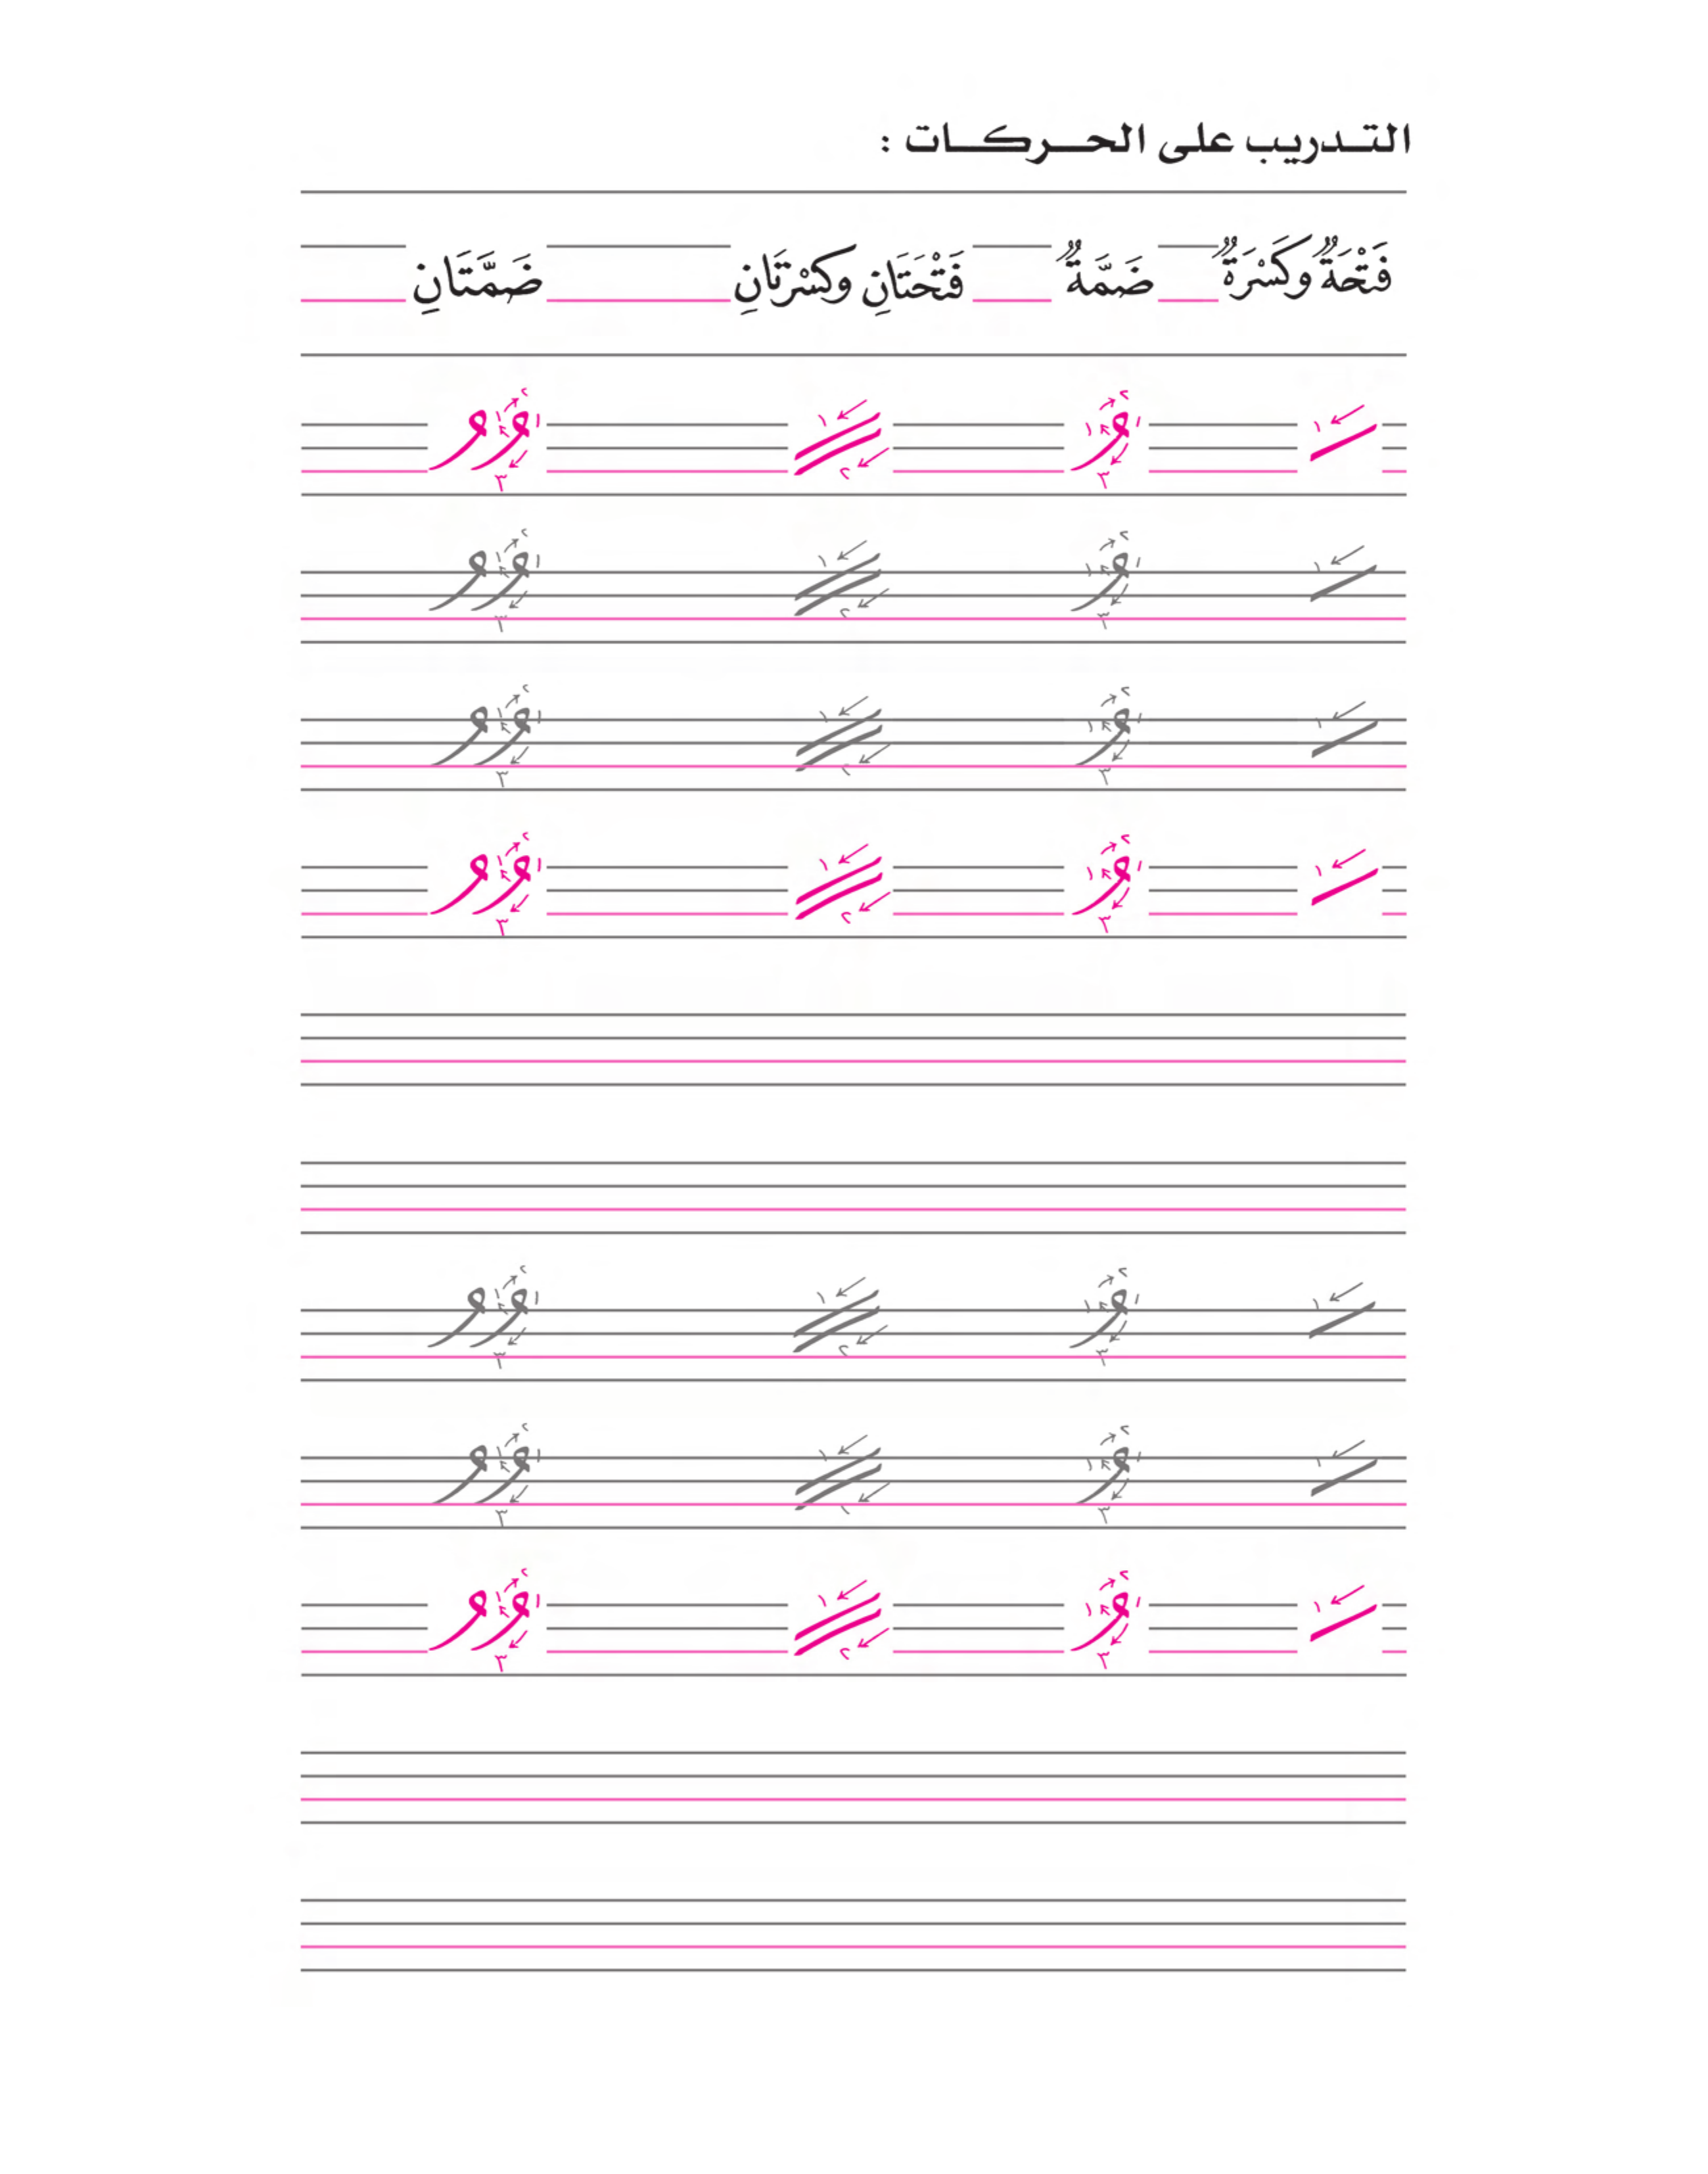 التـدريب على الحـركـات :
فَتْحَةٌ وكَسْرَةٌ ضَمَّةٌ فَتْحَتَانِ وكسْرتَانِ ضَمَّتَانِ